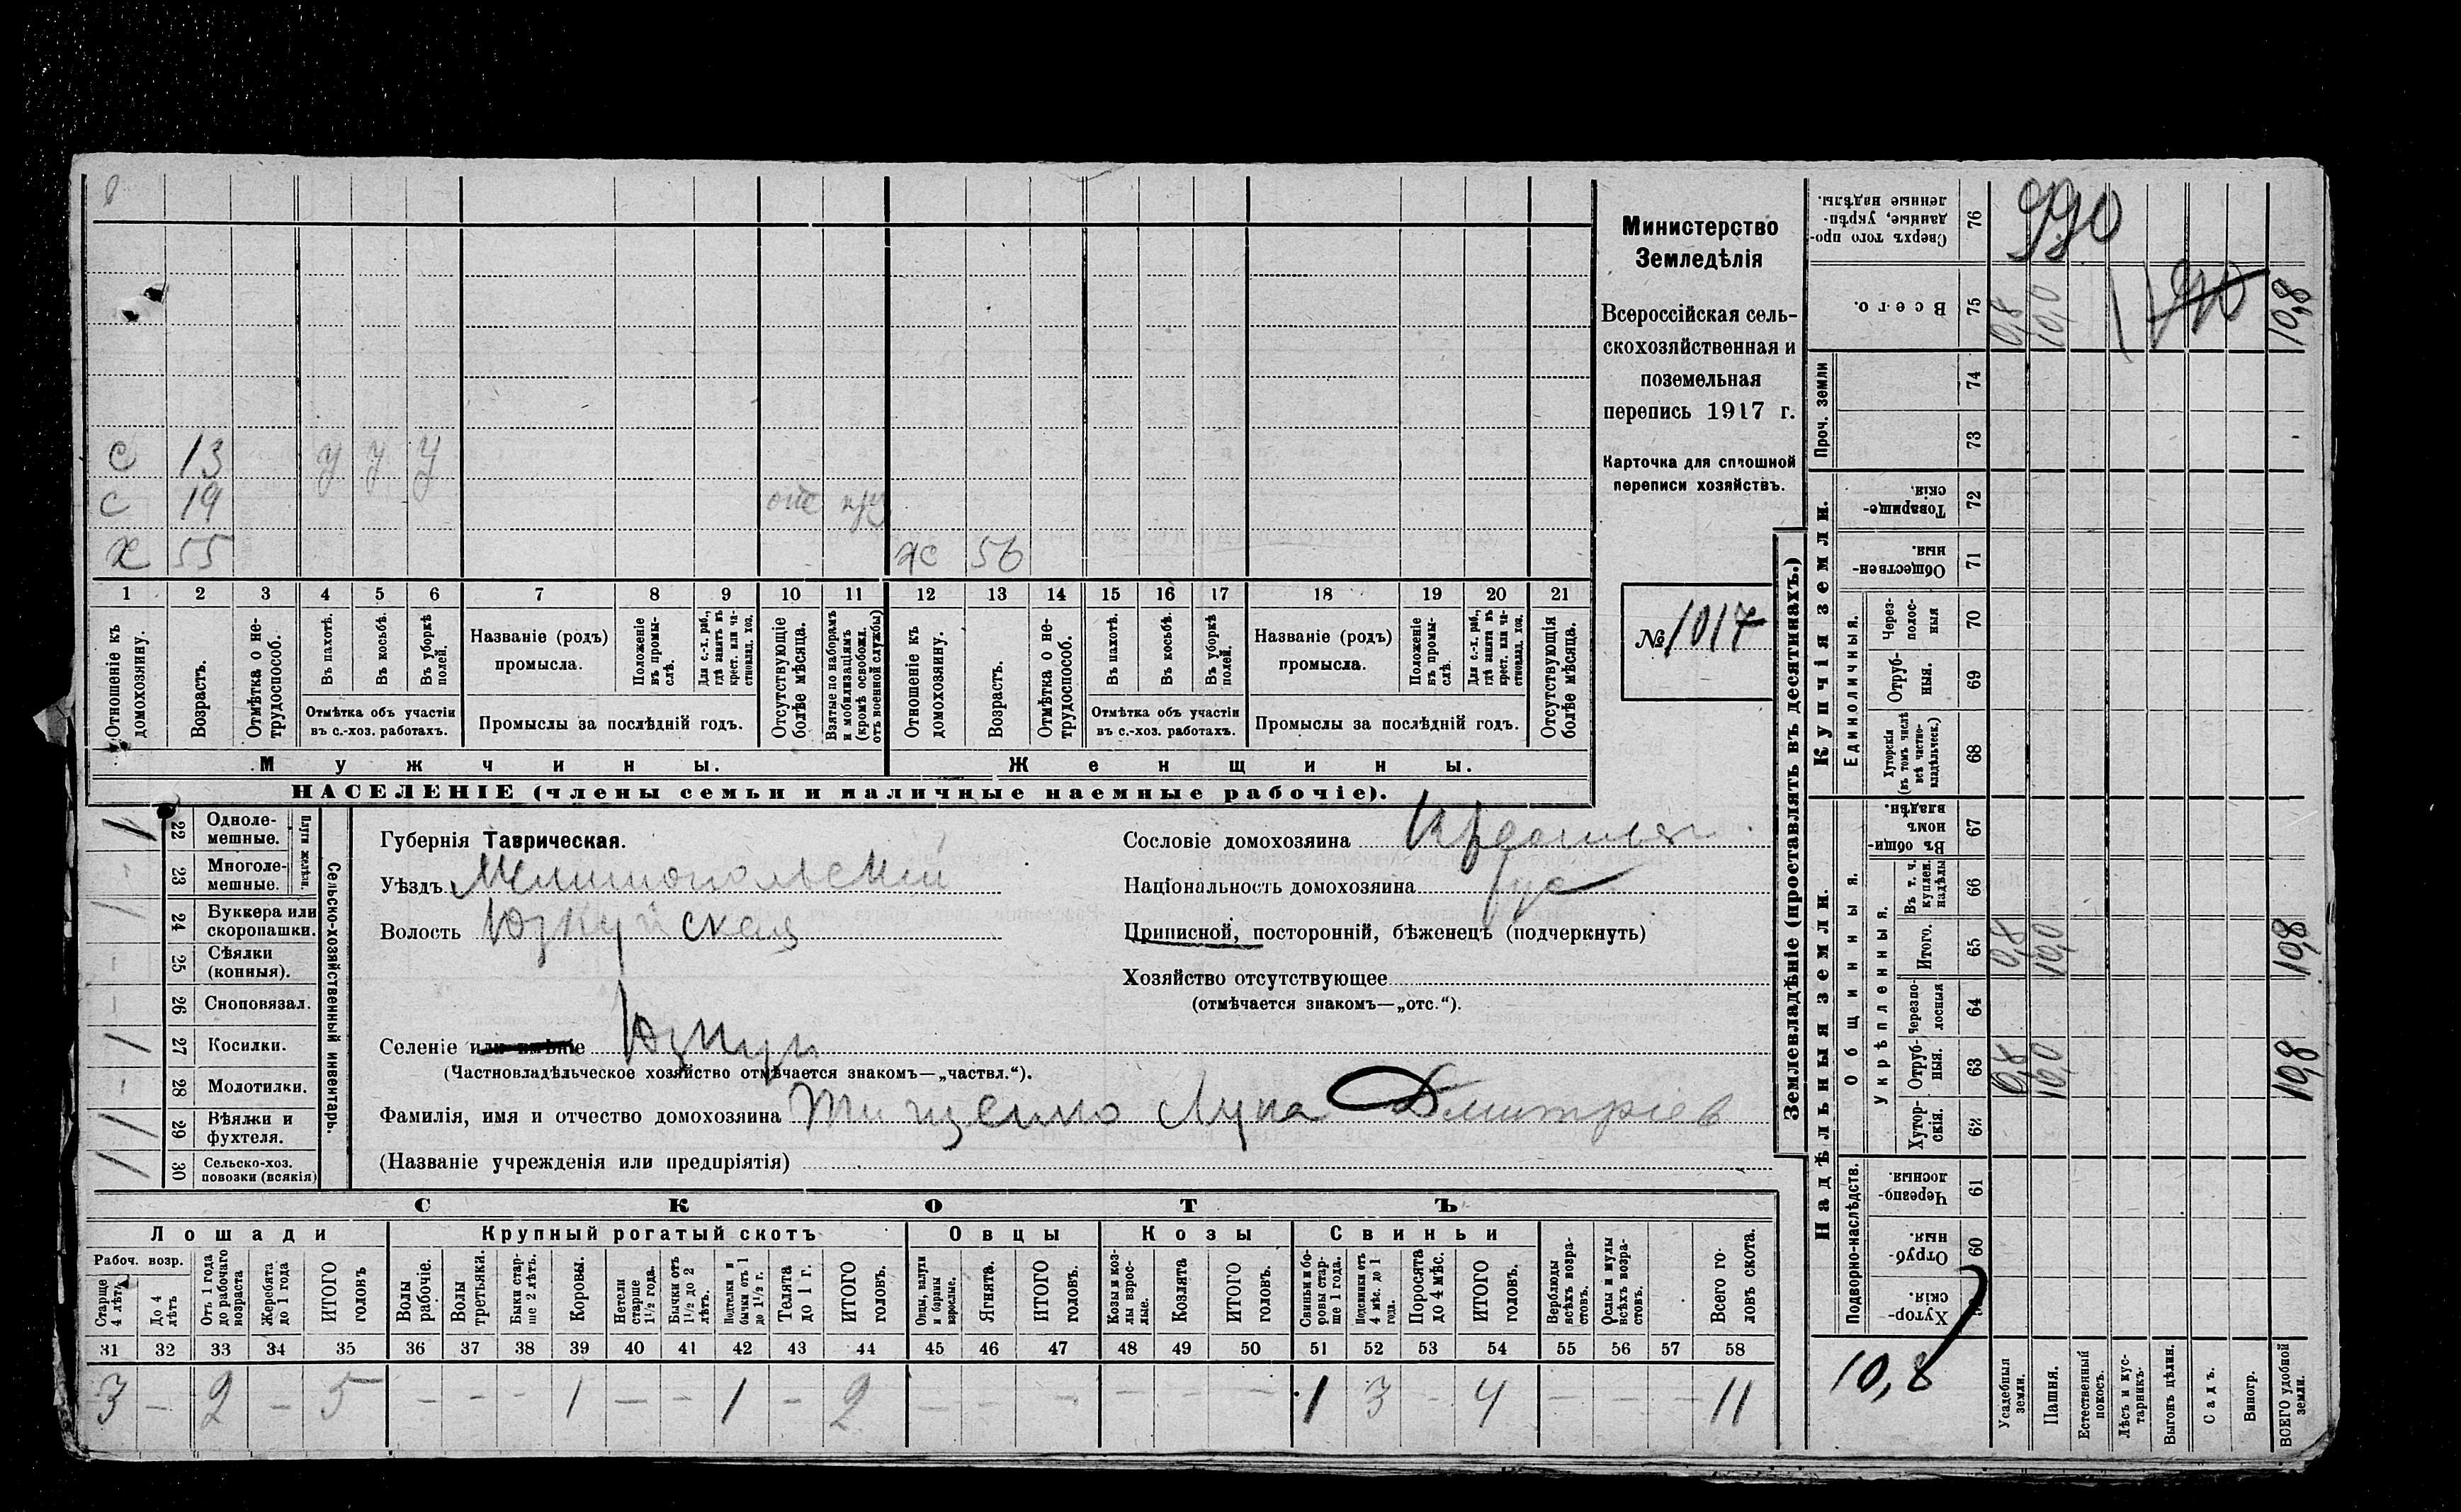 Министерство
Земледѣлія
Всероссійская сель-
скохозяйственная и
поземельная
перепись 1917 г.
Карточка для сплошной
переписи хозяйствъ.
№ 1017
с 13 у у у
с 19 отс
х 55 ж 56
1 2 3 4 5 6 7 8 9 10 11 12 13 14 15 16 17 18 19 20 21
Отношеніе къ домохозяину.
Возрастъ.
Отмѣтка о не-трудоспособ.
Въ пахотѣ.
Въ косьбѣ.
Въ уборкѣ полей.
Отмѣтка объ участіи
въ с.-хоз. работахъ.
Названіе (родъ)
промысла.
Положеніе въ промы-слѣ.
Для с.-х. раб., гдѣ занятъ въ крест. или ча-стновлад. хоз.
Промыслы за послѣдній годъ.
Отсутствующіе болѣе мѣсяца.
Взятые по наборамъ и мобилизаціямъ (кромѣ освобожд. отъ военной службы)
Отношеніе къ домохозяину.
Возрастъ.
Отмѣтка о не-трудоспособ.
Въ пахотѣ.
Въ косьбѣ.
Въ уборкѣ полей.
Отмѣтка объ участіи
въ с.-хоз. работахъ.
Названіе (родъ)
промысла.
Положеніе въ промы-слѣ.
Для с.-х. раб., гдѣ занята въ крест. или ча-стновлад. хоз.
Промыслы за послѣдній годъ.
Отсутствующія болѣе мѣсяца.
Мужчины.
Женщины.
НАСЕЛЕНІЕ (члены семьи и наличные наемные рабочіе).
Сельско-хозяйственный инвентарь.
Плуги желѣзн.
1 22 Однолe-мешные.
23 Многоле-мешные.
24 Буккера или скоропашки.
25 Сѣялки (конныя).
26 Сноповязал.
1 27 Косилки.
28 Молотилки.
1 29 Вѣялки и фухтеля.
1 30 Сельско-хоз. повозки (всякія)
Губернія Таврическая.
Уѣздъ Мелитопольскій
Волость Юзкуйская
Селеніе или имѣніе Юзкуи
(Частновладѣльческое хозяйство отмѣчается знакомъ—„частвл.“).
Фамилія, имя и отчество домохозяина Тищенко Лука Дмитріев
(Названіе учрежденія или предпріятія)
Сословіе домохозяина Крестьян
Національность домохозяина рус
Приписной, посторонній, бѣженецъ (подчеркнуть)
Хозяйство отсутствующее
(отмѣчается знакомъ—„отс.“).
СКОТЪ
Лошади
Крупный рогатый скотъ
Овцы
Козы
Свиньи
Рабоч. возр.
Старше 4 лѣтъ
До 4 лѣтъ
Отъ 1 года до рабочаго возраста
Жеребята до 1 года
ИТОГО головъ
Волы рабочіе.
Волы третьяки.
Быки стар-ше 2 лѣтъ.
Коровы.
Нетели старше 1½ года.
Бычки отъ 1½ до 2 лѣтъ.
Подтелки и бычки отъ 1 до 1½ г.
Телята до 1 г.
ИТОГО головъ.
Овцы, валухи и бараны взрослые.
Ягнята.
ИТОГО головъ.
Козы и коз-лы взрос-лые.
Козлята
ИТОГО головъ.
Свиньи и бо-ровы стар-ше 1 года.
Подсвинки отъ 4 мѣс. до 1 года.
Поросята до 4 мѣс.
ИТОГО головъ.
Верблюды всѣхъ возра-стовъ.
Ослы и мулы всѣхъ возра-стовъ.
Всего го-ловъ скота.
31 32 33 34 35 36 37 38 39 40 41 42 43 44 45 46 47 48 49 50 51 52 53 54 55 56 57 58
3 – 2 – 5 – – – 1 – – 1 – 2 – – – – – – 1 3 – 4 – – – 11
Землевладѣніе (проставлять въ десятинахъ.)
Надѣльныя земли.
Купчія земли.
Проч. земли
Подворно-наслѣдств.
Общинныя.
Укрѣпленныя.
Единоличныя.
Сверхъ того про-данные, укрѣп-ленные надѣлы. 76
Всего. 75 0,8 10,0 10,8
74
73
Товарище-скія. 72
Обществен-ныя. 71
Через-полос-ныя 70
Отруб-ныя. 69
Хуторскія (въ томъ числѣ всѣ частно-владѣльческ.) 68
Въ общин-номъ владѣн. 67
Въ т. ч. куплен. надѣлы 66
Итого. 65 0,8 10,0 10,8
Черезпо-лосныя 64
Отруб-ныя. 63 0,8 10,0 10,8
Хутор-скія. 62
Черезпо-лосныя. 61
Отруб-ныя. 60
Хутор-скія.
10,8
Усадебныя земли.
Пашня.
Естественный покосъ.
Лѣсъ и кус-тарникъ.
Выгонъ цѣлин.
Садъ.
Виногр.
ВСЕГО удобной земли.